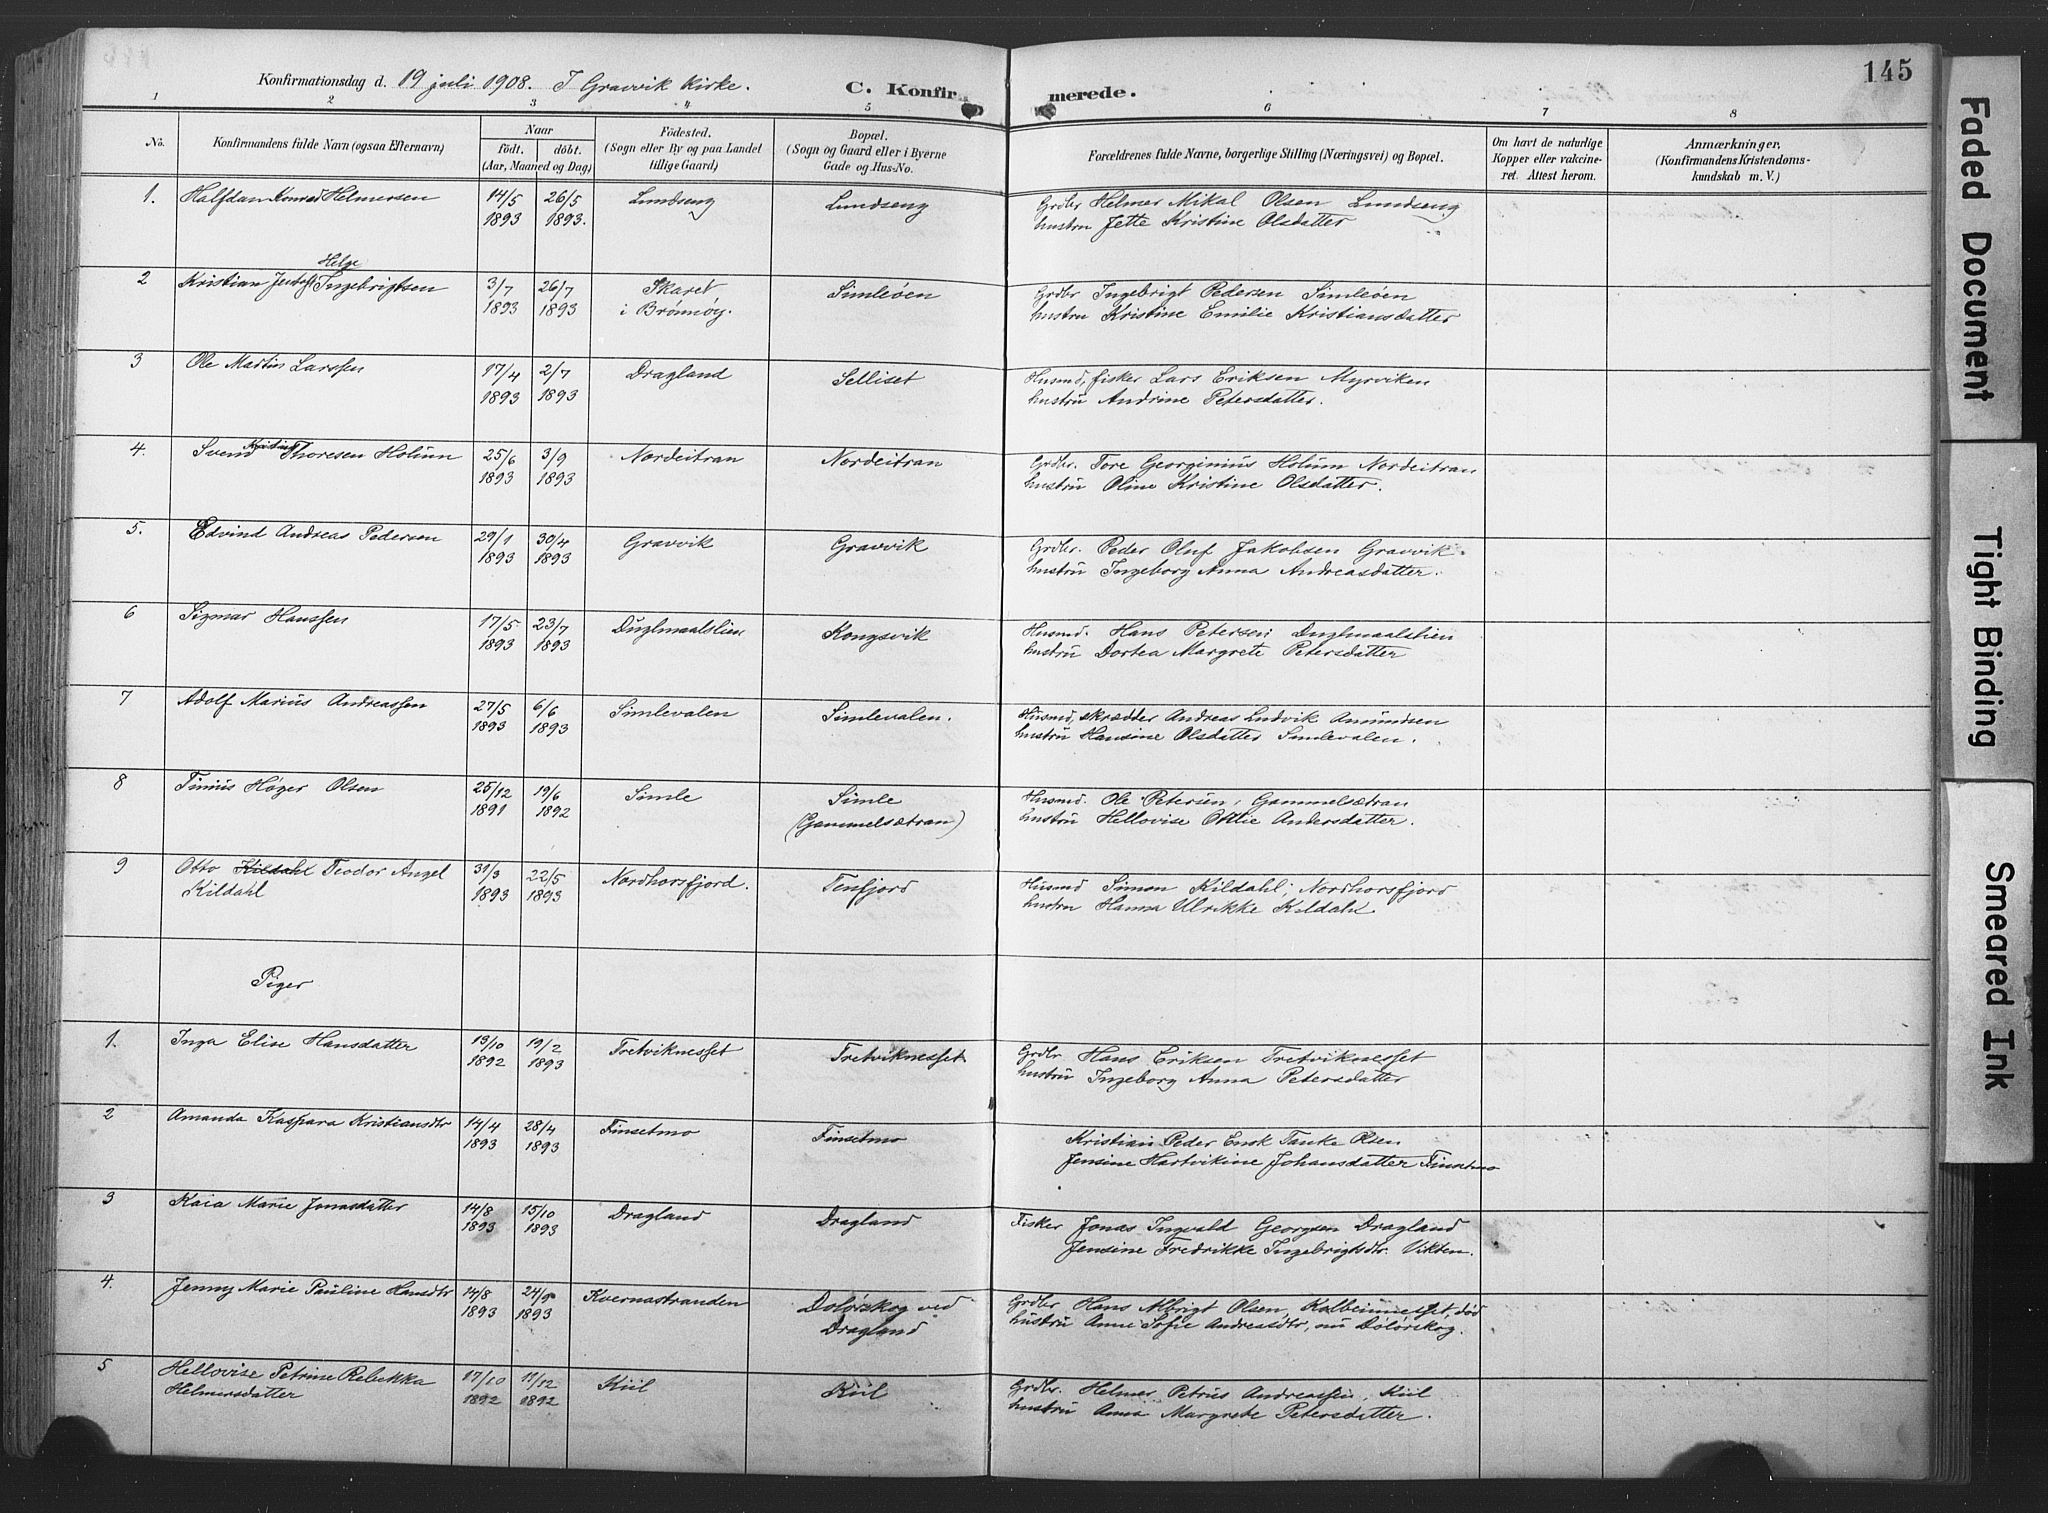 145
Konfirmationsdag d. 19 juli 1908. I Gravvik Kirke.
C. Konfirmerede.
1 2 3 4 5 6 7 8
No.
Konfirmandens fulde Navn (ogsaa Efternavn)
Naar
födt. döbt.
(Aar, Maaned og Dag)
Födested.
(Sogn eller By og paa Landet
tillige Gaard)
Bopæl.
(Sogn og Gaard eller i Byerne
Gade og Hus-No.
Forældrenes fulde Navne, borgerlige Stilling (Næringsvei) og Bopæl.
Om havt de naturlige
Kopper eller vakcine-
ret. Attest herom.
Anmærkninger,
(Konfirmandens Kristendoms-
kundskab m. V.)
1. Halfdan Konrad Helmersen 14/5 1893 26/5 1893. Lundseng Lundseng
Grdbr Helmer Mikal Olsen Lundseng
hustru Jette Kristine Olsdatter
2 Kristian Jentoft Helge Ingebrigtsen 3/7 1893 26/7 1893 Skaret i Brønnøy. Simleöen
Grdbr Ingebrigt Pedersen Simleöen
hustru Kristine Emilie Kristiansdatter
3 Ole Martin Larssen 17/4 1893 2/7 1893 Dragland Selliset
Husmd, fisker Lars Eriksen Myrviken
hustru Andrine Petersdatter.
4. Svend Kristian Thoresen Holum 25/6 1893 3/9 1893 Nordeitran Nordeitran
Grdbr. Tore Georginius Holum Nordeitran
hustru Oline Kristine Olsdatter.
5. Edvind Andreas Pedersen 29/1 1893 30/4 1893 Gravvik Gravvik
Grdbr. Peder Oluf Jakobsen Gravvik.
hustru Ingeborg Anna Andreasdatter.
6 Sigmar Hanssen 17/5 1893 23/7 1893 Duglmaalslien Kongsvik
Husmd. Hans Petersen, Duglmaalslien
hustru Dortea Margrete Petersdatter
7 Adolf Marius Andreassen 27/5 1893 6/6 1893 Simlevalen Simlevalen.
Husmd, skrædder Andreas Ludvik Amundsen
hustru Hansine Olsdatter Simlevalen.
8 Tinius Høger Olsen 25/12 1891 19/6 1892 Simle Simle
(Gammelsætran)
Husmd. Ole Petersen, Gammelsætran
hustru Hellovise Otilie Andersdatter.
9 Otto Kildahl Teodor Angel Kildahl 31/3 1893 22/5 1893 Nordhorsfjord. Tenfjord
Husmd Simon Kildahl, Nordhorsfjord
hustru Hanna Ulrikke Kildahl
Piger
1. Inga Elise Hansdatter 13/10 1892 19/2 1893 Tretviknesset Tretviknesset
Grdbr Hans Eriksen Tretviknesset
hustru Ingeborg Anna Petersdatter
2 Amanda Kaspara Kristiansdtr 14/4 1893 28/4 1893 Finsetmo Finsetmo
Kristian Peder Tanke Olsen
Jensine Hartvikine Johansdatter Finsetmo
3 Kaia Marie Jonasdatter 14/8 1893 15/10 1893 Dragland Dragland
Fisker Jonas Ingvald Georgsen Dragland
Jensine Fredrikke Ingebrigtsdtr. Vikten.
4. Jenny Marie Pauline Hansdtr 14/8 1893 24/9 1893 Kvernastranden Dolörskog ved
Dragland
Grdbr Hans Albrigt Olsen, Kolbeinnesset, död
hustru Anne Sofie Andreasdtr, nu Dölörskog.
5 Hellovise Petrine Rebekka 17/10 1892 11/12 1892 Kiil Kiil
Helmersdatter
Grdbr. Helmer Petrus Andreassen, Kiil
hustru Anna Margrete Petersdatter.
Faded Document
Tight Binding
Smeared Ink